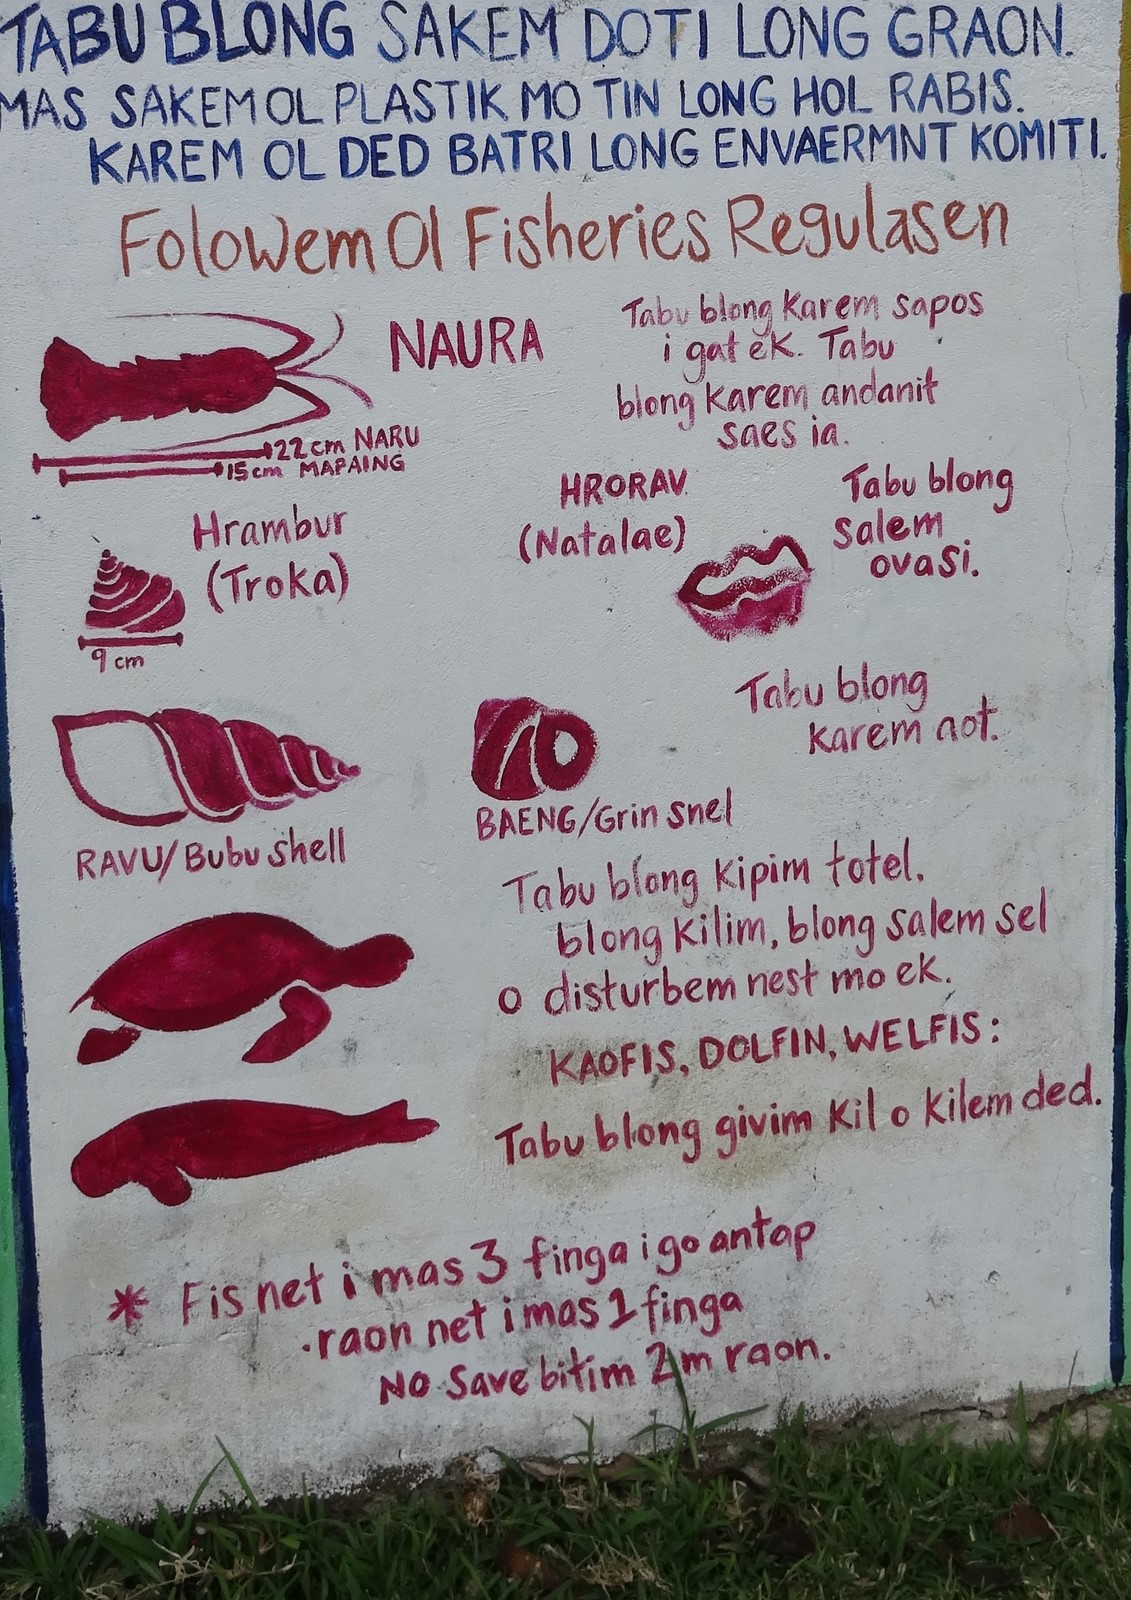 TABU BLONG SAKEM DOTI LONG GRAON.
MAS SAKEM OL PLASTIK MO TIN LONG HOL RABIS.
KAREM OL DED BATRI LONG ENVAERMNT KOMITI.
Folowem Ol Fisheries Regulasen
NAURA
22 cm NARU
15 cm MAPAING
Tabu blong karem sapos
i gat ek. Tabu
blong karem andanit
saes ia.
Hrambur
(Troka)
9 cm
HRORAV
(Natalae)
Tabu blong
salem
ovasi.
RAVU/Bubu shell
BAENG/Grin snel
Tabu blong
karem aot.
Tabu blong kipim totel.
blong kilim, blong salem sel
o disturbem nest mo ek.
KAOFIS, DOLFIN, WELFIS:
Tabu blong givim kil o kilem ded.
* Fis net i mas 3 finga i go antap
.raon net i mas 1 finga
NO save bitim 2 m raon.